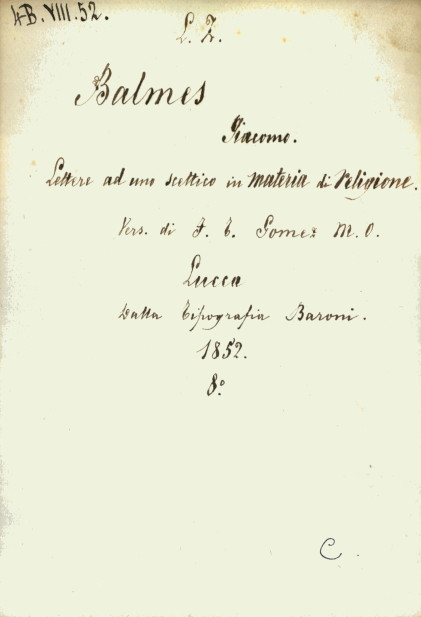 4-B. VIII. 52.
L. Z.
Balmes
Giacomo.
Lettere ad uno scettico in materia di Religione.
Vers. di F. E. Gomez M. O.
Lucca
Dalla Tipografia Baroni.
1852.
8.°
C.